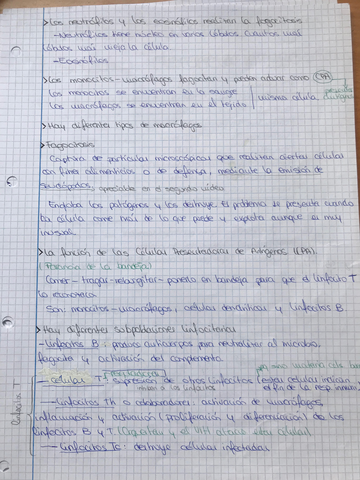 >Los neutrófilos y los eosinófilos realizan la fagocitosis
-Neutrófilos tiene núcleo en varios lóbulos. Cuantos más
lóbulos más vieja la célula.
-Eosinófilos
>Los monocitos-macrófagos fagocitan y pueden actuar como CPA
Los monocitos se encuentran en la sangre
Los macrófagos se encuentran en el tejido
misma célula
>Hay diferentes tipos de macrófagos
>Fagocitosis
Captura de partículas microscópicas que realizan ciertas células
con fines alimenticios o de defensa, mediante la emisión de
seudópodos, apreciable en el segundo vídeo
Engloba los patógenos y los destruye. El problema se presenta cuando
la célula come más de lo que puede y explota aunque es muy
inusual.
>La función de las Células Presentadoras de Antígenos (CPA)
(Potencia de la bandeja)
Comer-tragar-regurgitar-ponerlo en bandeja para que el linfocito T
lo reconozca
Son: monocitos-macrófagos, células dendríticas y linfocitos B
>Hay diferentes subpoblaciones linfocitarias
-Linfocitos B: produce anticuerpos para neutralizar al microbio,
fagocito y activación del complemento
(reguladoras)
-Células T: supresión de otros linfocitos (estas células inician
el fin de la resp. inmun.
Linfocitos T
-Linfocitos Th o colaboradores: activación de macrófagos,
inflamación y activación (proliferación y diferenciación) de los
linfocitos B y T
-Linfocitos Tc: destruye células infectadas